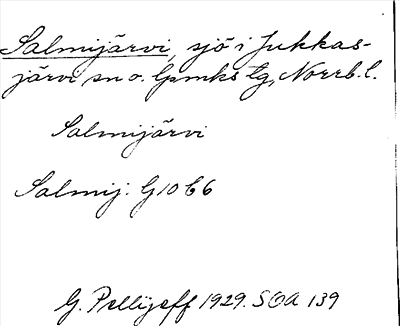 Salmijärvi, sjö i Jukkas-
järvi sn o. Lpmks tg, Norrb. l.
Salmijärvi
Salmij: G10 C6
G. Pellijeff 1929. SOA 139